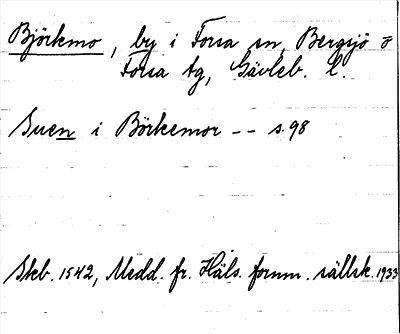 Björkmo, by i Forsa sn, Bergsjö o
Forsa tg, Gävleb. l.
Suen i Börkemor -- s. 98
Skb. 1542, Medd. fr. Häls. fornm. sällsk. 1933